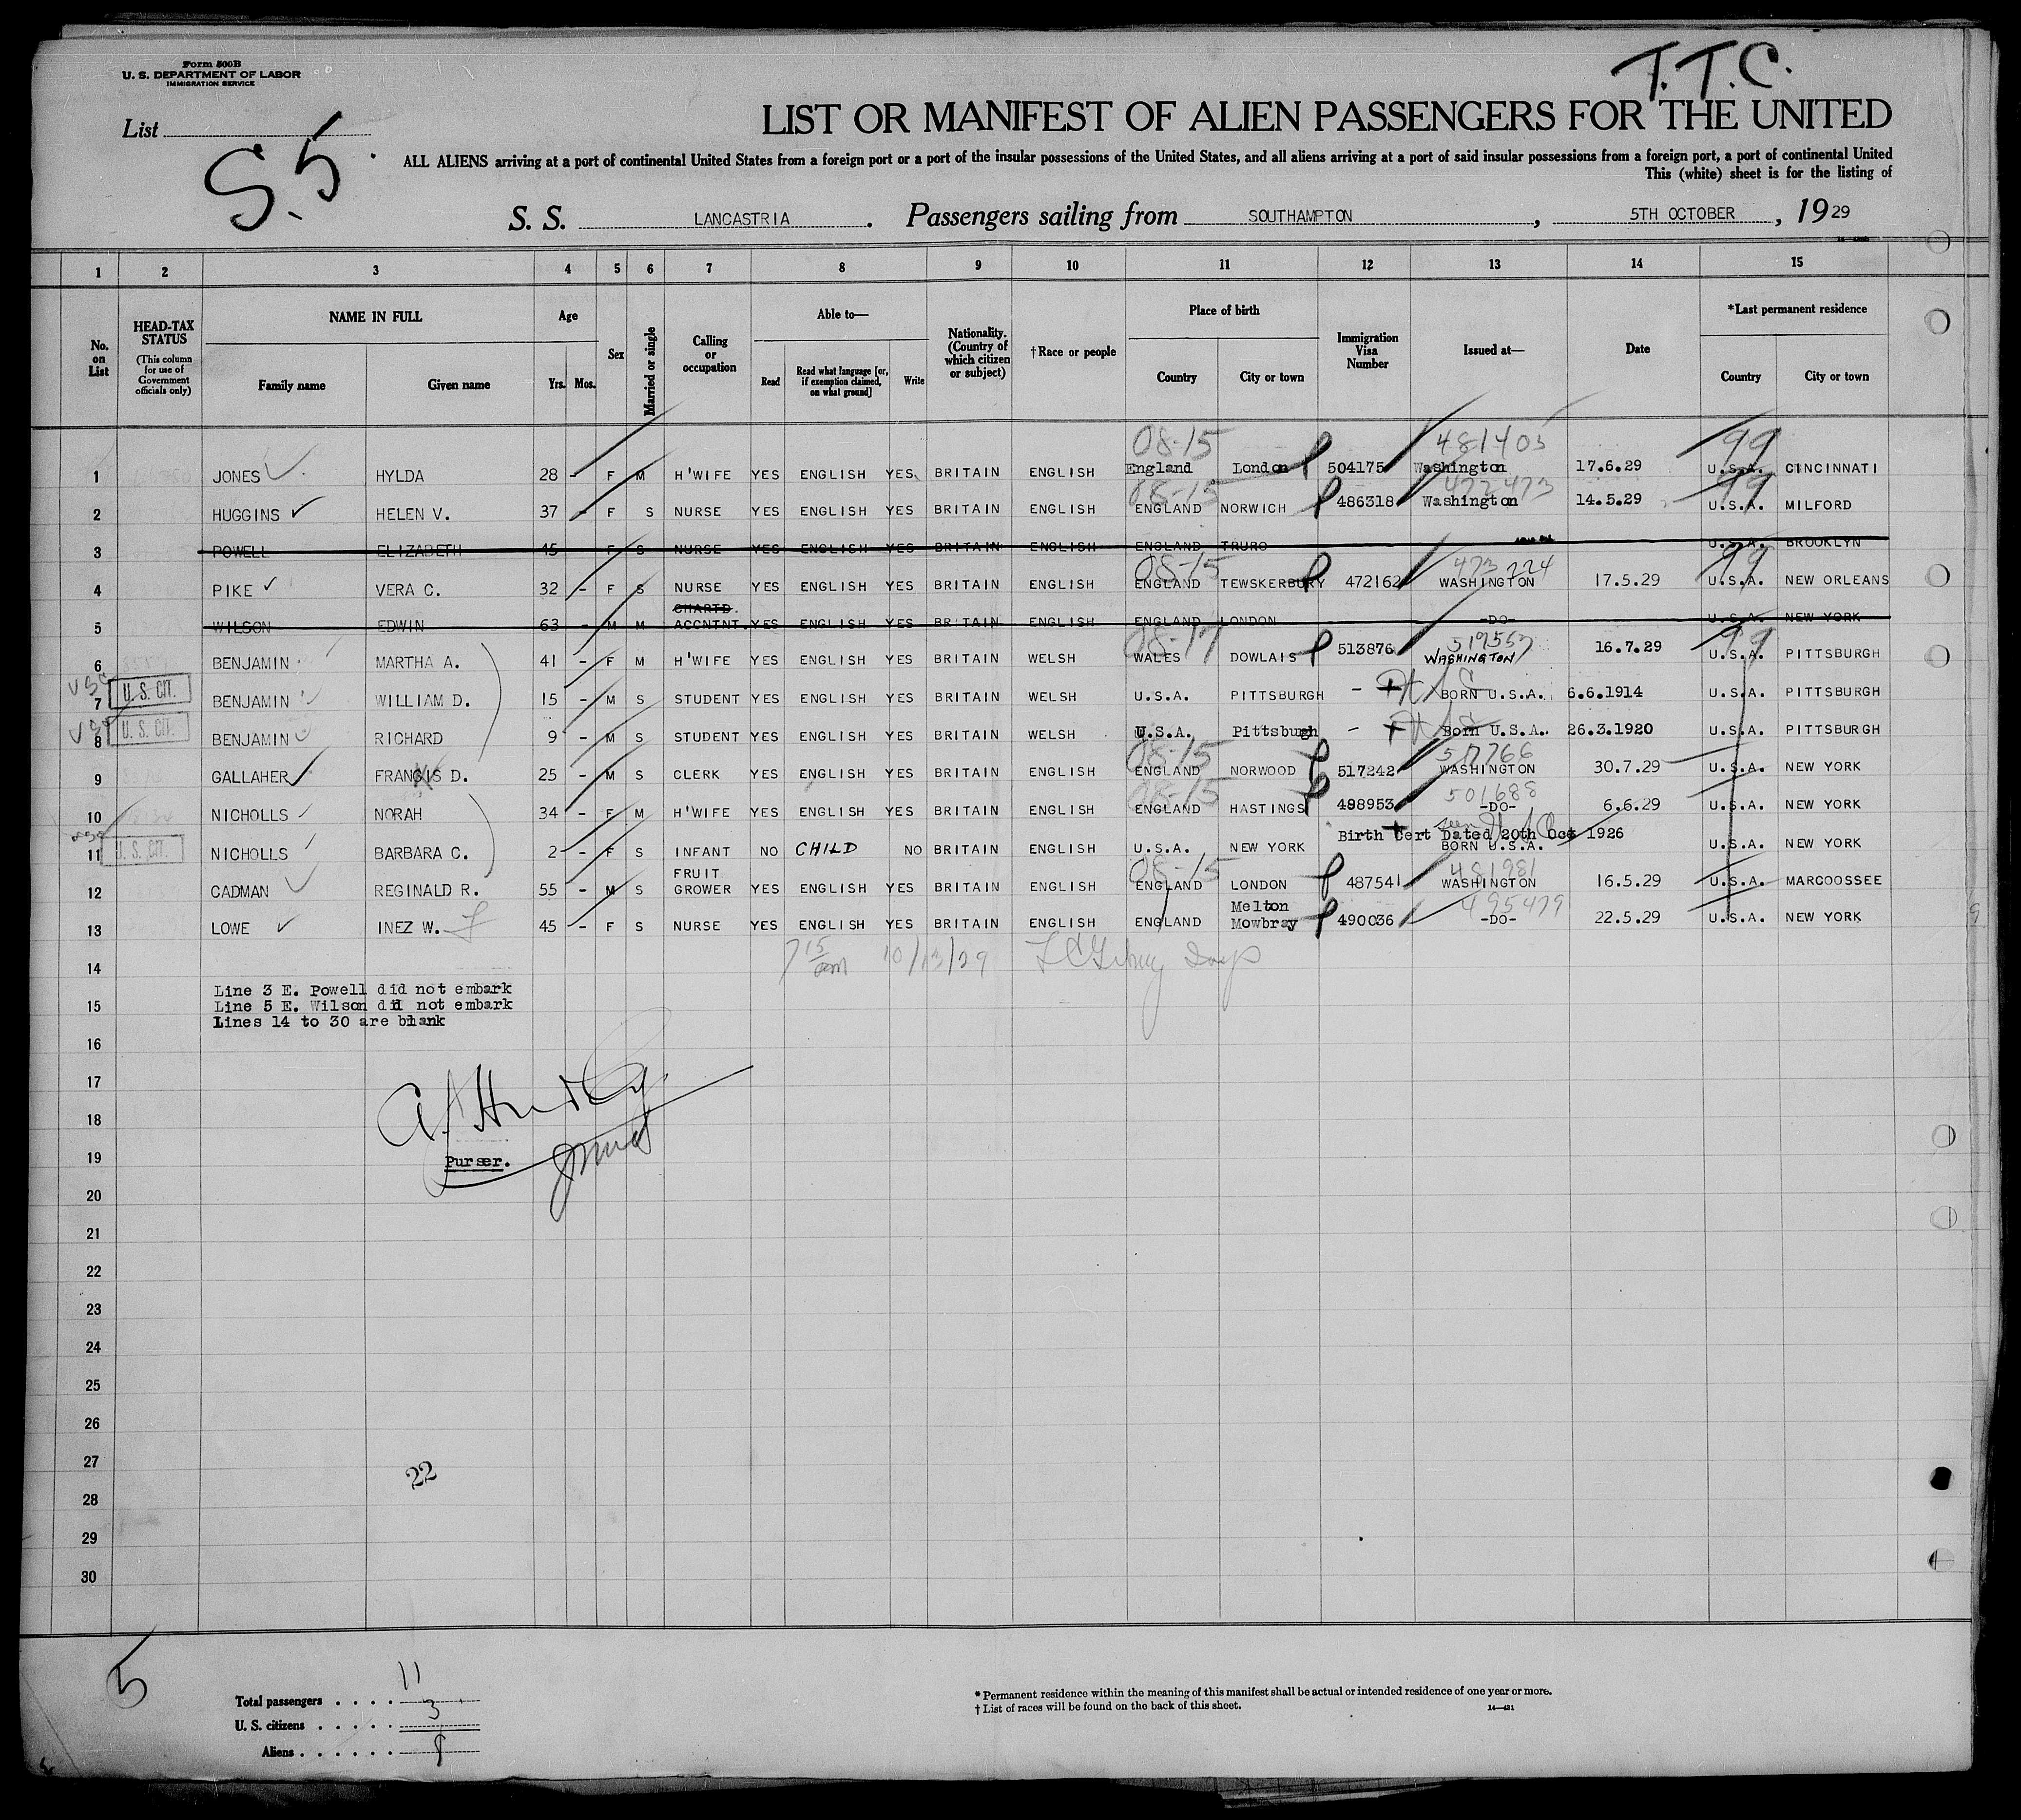 Form 500B
U. S. DEPARTMENT OF LABOR
IMMIGRATION SERVICE
T. T. C.
List
S. 5.
LIST OR MANIFEST OF ALIEN PASSENGERS FOR THE UNITED
ALL ALIENS arriving at a port of continental United States from a foreign port or a port of the insular possessions of the United States, and all aliens arriving at a port of said insular possessions from a foreign port, a port of continental United
This (white) sheet is for the listing of
S. S. LANCASTRIA. Passengers sailing from SOUTHAMPTON, 5TH OCTOBER, 1929
1 2 3 4 5 6 7 8 9 10 11 12 13 14 15
No. on List
HEAD-TAX STATUS
(This column for use of Government officials only)
NAME IN FULL
Family name Given name
Age
Yrs. Mos.
Sex
Married or single
Calling or occupation
Able to—
Read Read what language [or, if exemption claimed, on what ground] Write
Nationality. (Country of which citizen or subject)
†Race or people
Place of birth
Country City or town
Immigration Visa Number
Issued at—
Date
*Last permanent residence
Country City or town
08-15 481403 99
1 JONES HYLDA 28 - F M H'WIFE YES ENGLISH YES BRITAIN ENGLISH England London 504175 Washington 17.6.29 U.S.A. CINCINNATI
08-15 472473 99
2 HUGGINS HELEN V. 37 - F S NURSE YES ENGLISH YES BRITAIN ENGLISH ENGLAND NORWICH 486318 Washington 14.5.29 U.S.A. MILFORD
3 POWELL ELIZABETH 45 F S NURSE YES ENGLISH YES BRITAIN ENGLISH ENGLAND TRURO U.S.A. BROOKLYN
08-15 473224 99
4 PIKE VERA C. 32 - F S NURSE YES ENGLISH YES BRITAIN ENGLISH ENGLAND TEWSKERBURY 472162 WASHINGTON 17.5.29 U.S.A. NEW ORLEANS
5 WILSON EDWIN 63 - M M CHARTD. ACCNTNT. YES ENGLISH YES BRITAIN ENGLISH ENGLAND LONDON -DO- U.S.A. NEW YORK
08-17 519557 99
6 BENJAMIN MARTHA A. 41 - F M H'WIFE YES ENGLISH YES BRITAIN WELSH WALES DOWLAIS 513876 WASHINGTON 16.7.29 U.S.A. PITTSBURGH
USC U. S. CIT.
7 BENJAMIN WILLIAM D. 15 - M S STUDENT YES ENGLISH YES BRITAIN WELSH U.S.A. PITTSBURGH - BORN U.S.A. 6.6.1914 U.S.A. PITTSBURGH
U. S. CIT.
8 BENJAMIN RICHARD 9 - M S STUDENT YES ENGLISH YES BRITAIN WELSH U.S.A. Pittsburgh - Born U.S.A. 26.3.1920 U.S.A. PITTSBURGH
08-15 517766
9 GALLAHER FRANCIS D. 25 - M S CLERK YES ENGLISH YES BRITAIN ENGLISH ENGLAND NORWOOD 517242 WASHINGTON 30.7.29 U.S.A. NEW YORK
08-15 501688
10 NICHOLLS NORAH 34 - F M H'WIFE YES ENGLISH YES BRITAIN ENGLISH ENGLAND HASTINGS 498953 -DO- 6.6.29 U.S.A. NEW YORK
Birth Cert Dated 20th Oct 1926
U. S. CIT.
11 NICHOLLS BARBARA C. 2 - F S INFANT NO CHILD NO BRITAIN ENGLISH U.S.A. NEW YORK BORN U.S.A. U.S.A. NEW YORK
08-15 481981
12 CADMAN REGINALD R. 55 - M S FRUIT GROWER YES ENGLISH YES BRITAIN ENGLISH ENGLAND LONDON 487541 WASHINGTON 16.5.29 U.S.A. MARCOOSSEE
495479
13 LOWE INEZ W. 45 - F S NURSE YES ENGLISH YES BRITAIN ENGLISH ENGLAND Melton Mowbray 490036 -DO- 22.5.29 U.S.A. NEW YORK
7 15 am 10/13/29
14
Line 3 E. Powell did not embark
15
Line 5 E. Wilson did not embark
Lines 14 to 30 are blank
16
17
18
19
Purser.
20
21
22
23
24
25
26
27
22
28
29
30
5
11
Total passengers . . . .
3
U. S. citizens . . . . .
Aliens . . . . . .
8
* Permanent residence within the meaning of this manifest shall be actual or intended residence of one year or more.
† List of races will be found on the back of this sheet.
14—421